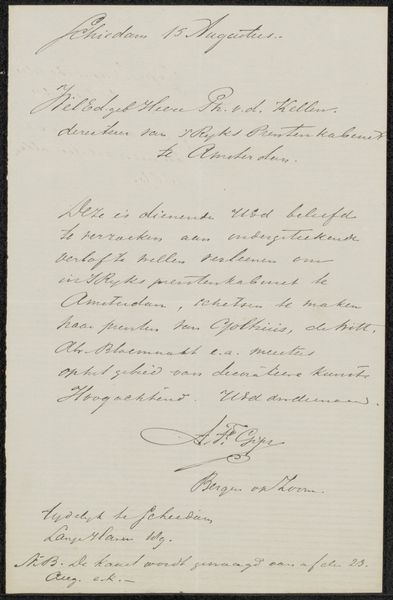 Schiedam 15 Augustus.
WelEdgeb Heere Ph. v. d. Kellen.
directeur van 's Ryks Prentenkabinet
te Amsterdam.
Deze is dienende UEd beleefd
te verzoeken aan ondergeteekende
verlof te willen verleenen om
in 's Ryks prentenkabinet te
Amsterdam, schetsen te maken
naar prenten van Goltzius, de Witt,
Abr. Bloemaart e. a. meesters
op het gebied van decoratieve kunst
Hoogachtend. UEd dw dienaar
A. F. Gips
Bergen op Zoom.
tydelyk te Schiedam
Lange Haven
N.B. De kaart wordt gevraagd van af den 23.
Aug. e.k. —